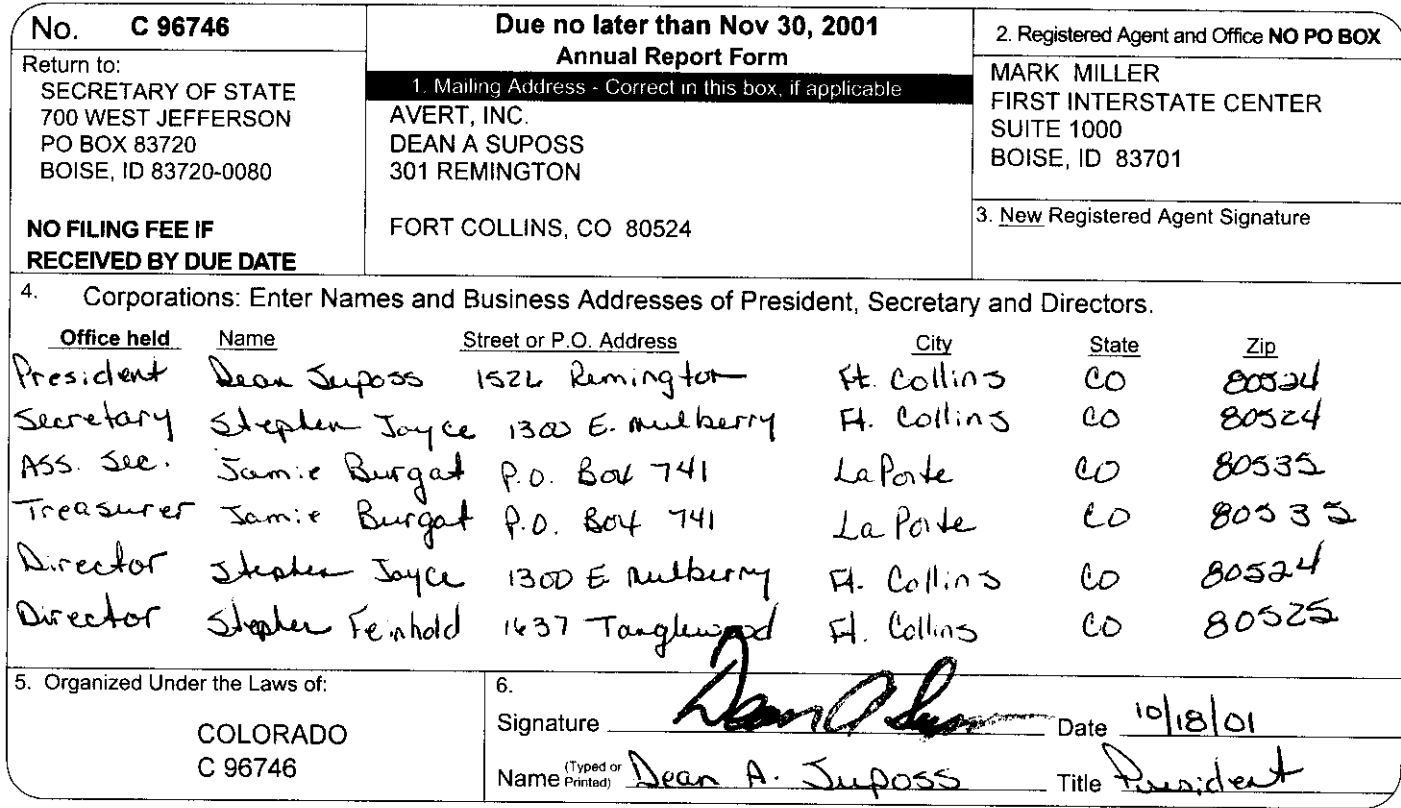 No. C 96746
Return to:
SECRETARY OF STATE
700 WEST JEFFERSON
PO BOX 83720
BOISE, ID 83720-0080
NO FILING FEE IF
RECEIVED BY DUE DATE
Due no later than Nov 30, 2001
Annual Report Form
1. Mailing Address - Correct in this box, if applicable
AVERT, INC.
DEAN A SUPOSS
301 REMINGTON
FORT COLLINS, CO 80524
2. Registered Agent and Office NO PO BOX
MARK MILLER
FIRST INTERSTATE CENTER
SUITE 1000
BOISE, ID 83701
3. New Registered Agent Signature
4. Corporations: Enter Names and Business Addresses of President, Secretary and Directors.
Office held Name Street or P.O. Address City State Zip
President Dean Suposs Remington Ft. Collins CO 80524
Secretary Stephen Joyce 1300 E. Mulberry Ft. Collins CO 80524
Ass. Sec. Jamie Burgat P.O. Box 741 LaPorte CO 80535
Treasurer Jamie Burgat P.O. Box 741 La Porte CO 80535
Director Stephen Joyce 1300 E Mulberry Ft. Collins CO 80524
Director Stephen Feinhold 1637 Tanglewood Ft. Collins CO 80525
5. Organized Under the Laws of:
COLORADO
C 96746
6.
Signature Date 10/18/01
Name (Typed or Printed) Dean A. Suposs Title President